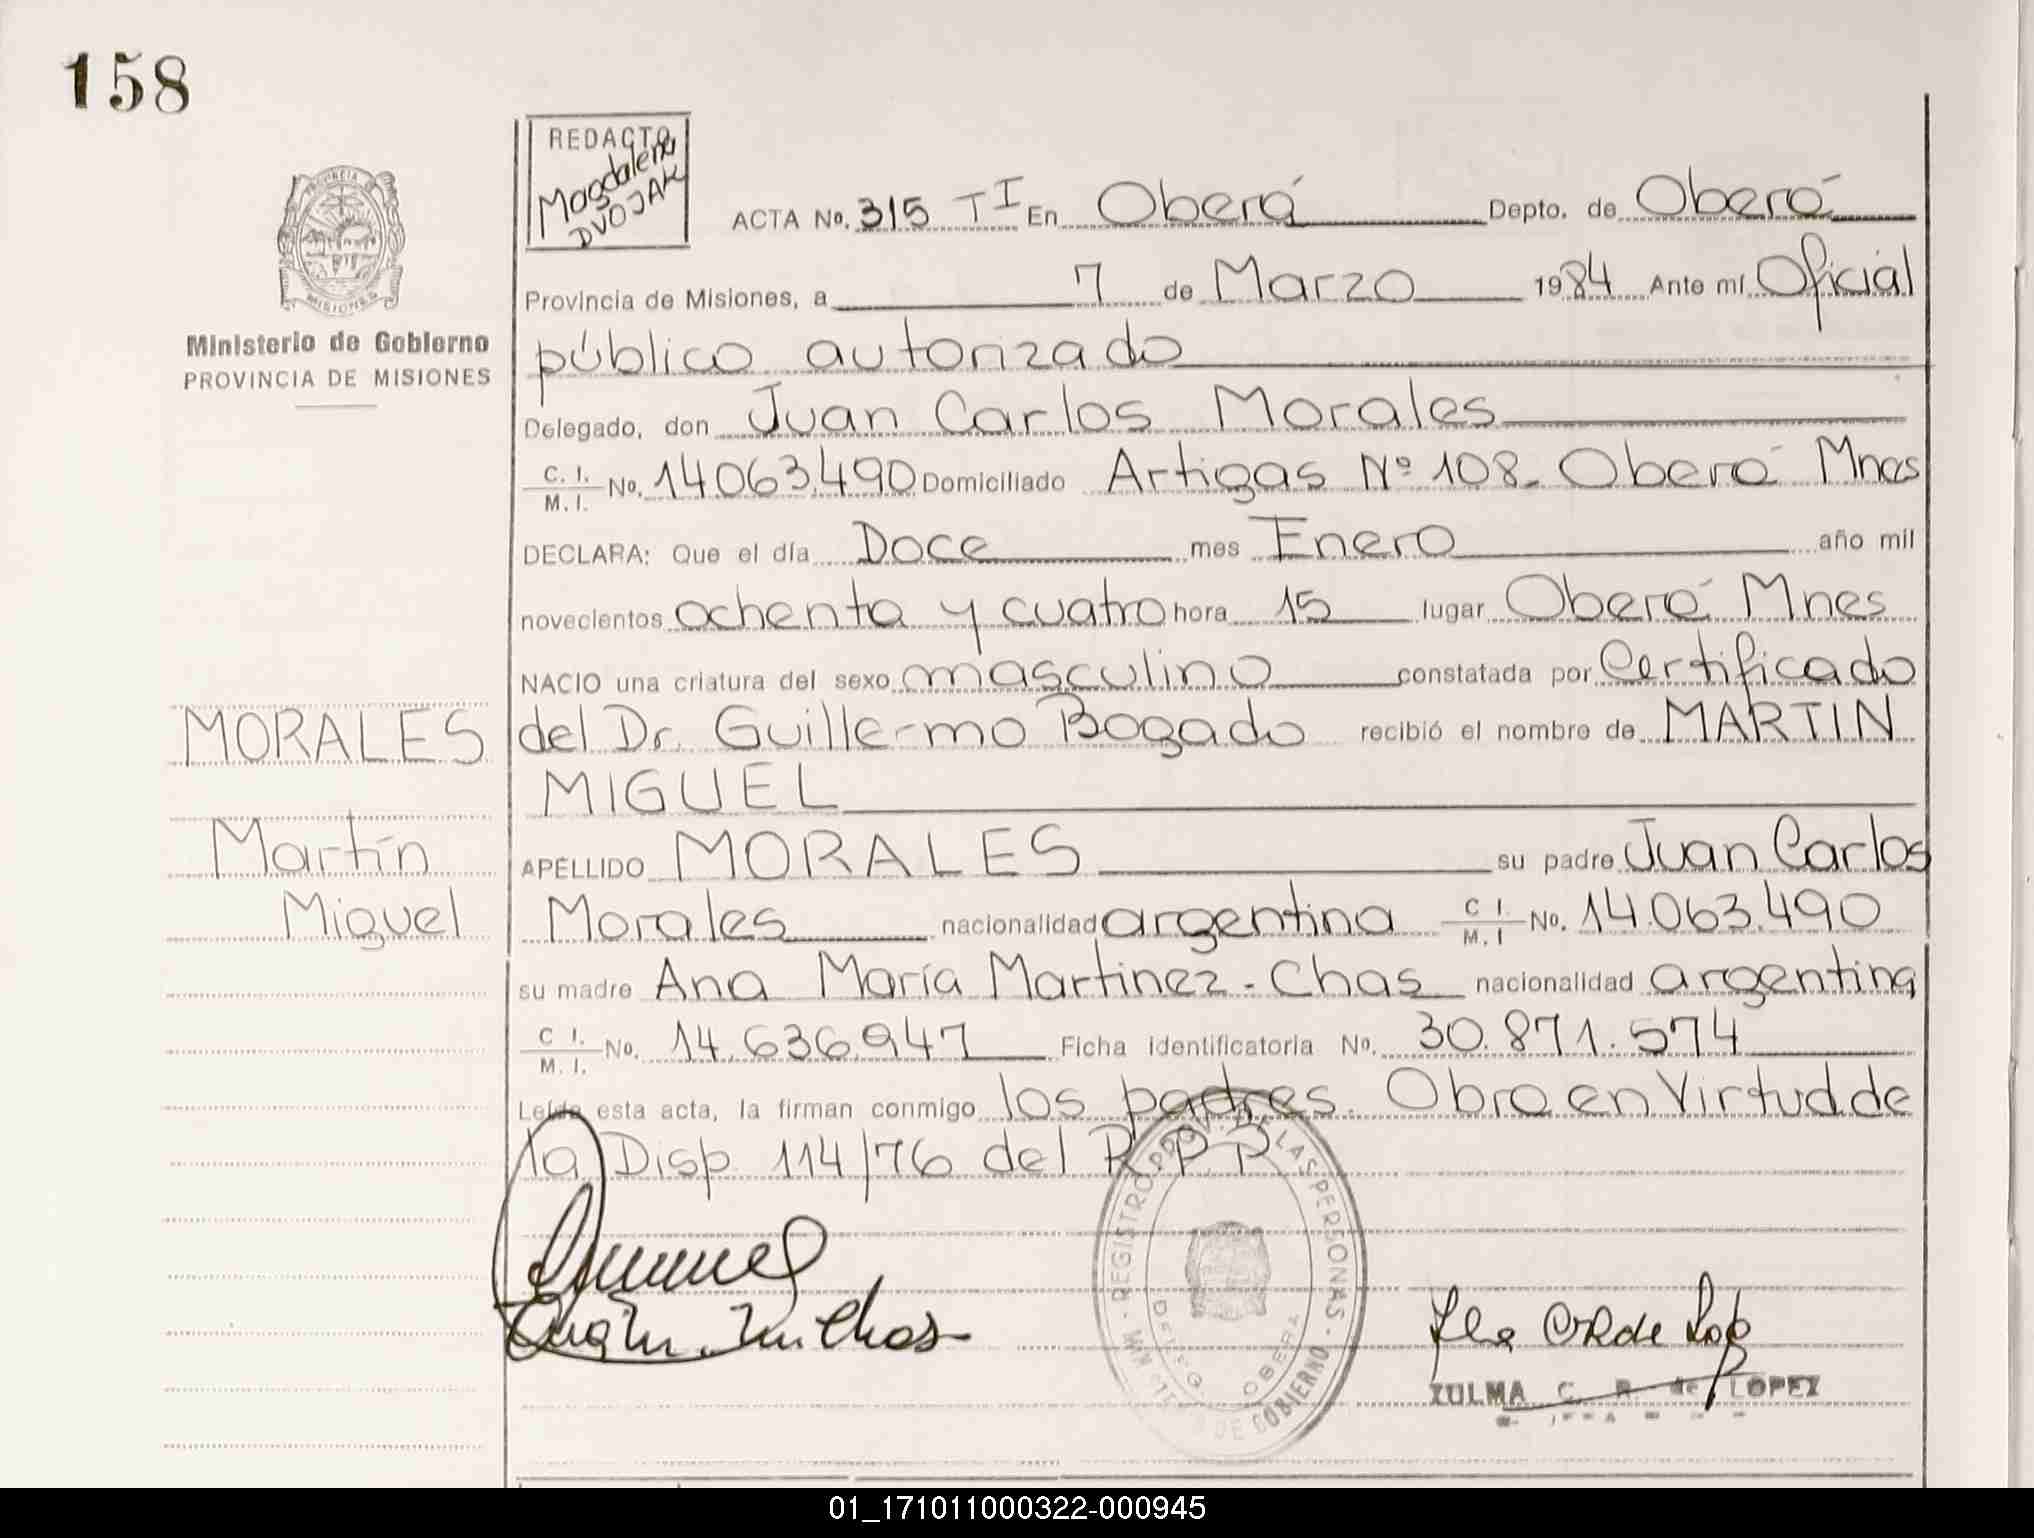 158
REDACTO
Magdalena
DVOJAK
ACTA No. 315 TI En Oberá Depto. de Oberá
Provincia de Misiones, a 7 de Marzo 1984 Ante mí Oficial
Ministerio de Gobierno
PROVINCIA DE MISIONES
público autorizado
Delegado, don Juan Carlos Morales
C. I. / M. I. No. 14.063.490 Domiciliado Artigas Nº 108. Oberá Mnes
DECLARA: Que el día Doce mes Enero año mil
novecientos ochenta y cuatro hora 15 lugar Oberá Mnes
NACIO una criatura del sexo masculino constatada por Certificado
del Dr. Guillermo Bogado recibió el nombre de MARTIN
MIGUEL
MORALES
Martín
Miguel
APELLIDO MORALES su padre Juan Carlos
Morales nacionalidad argentina C I. / M. I No. 14.063.490
su madre Ana María Martinez - Chas nacionalidad argentina
C I. / M. I. No. 14.636.947 Ficha Identificatoria No. 30.871.574
Leída esta acta, la firman conmigo los padres. Obra en Virtud de
la Disp. 114/76 del R.P.P.
REGISTRO PROV. DE LAS PERSONAS
DE GOBIERNO
OBERA
ZULMA C. R. de LOPEZ
01_171011000322-000945